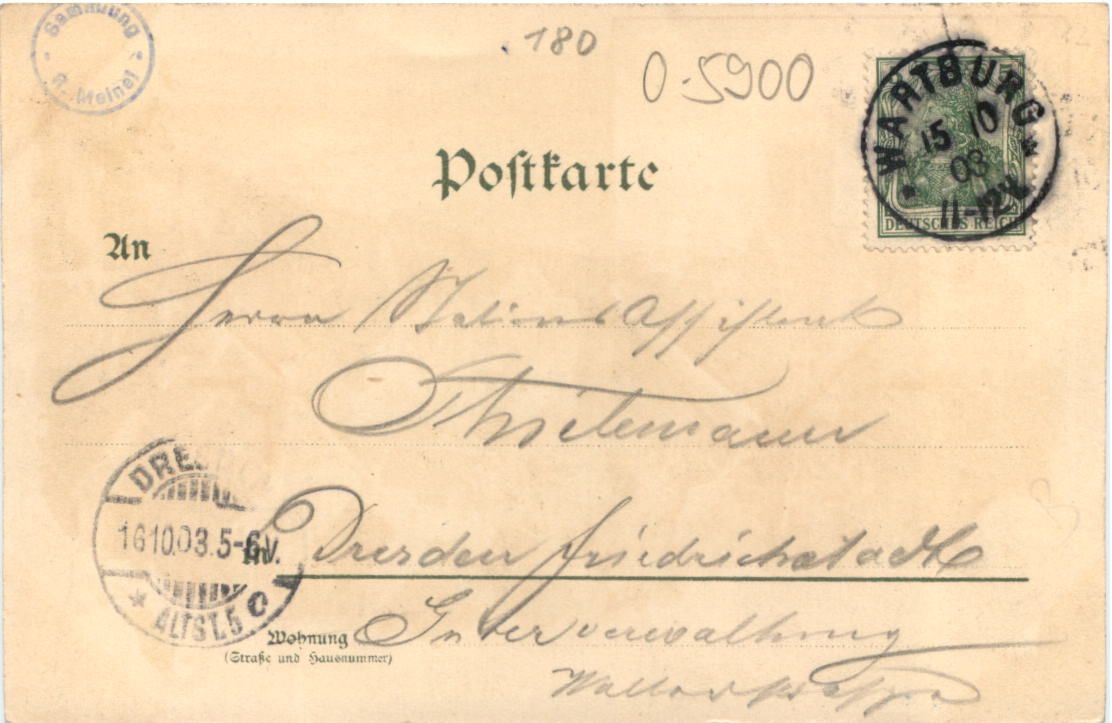 Sammlung
R. Meinel
180
0-5900
WARTBURG
15 10
03
11-12V
DEUTSCHES REICH
Postkarte
An
Herrn Stations Assistent
Thielemann
DRESDEN
16.10.03.5-6V.
ALTST.5 c
in.
Dresden Friedrichstadt
Wohnung
(Straße und Hausnummer)
Güterverwaltung